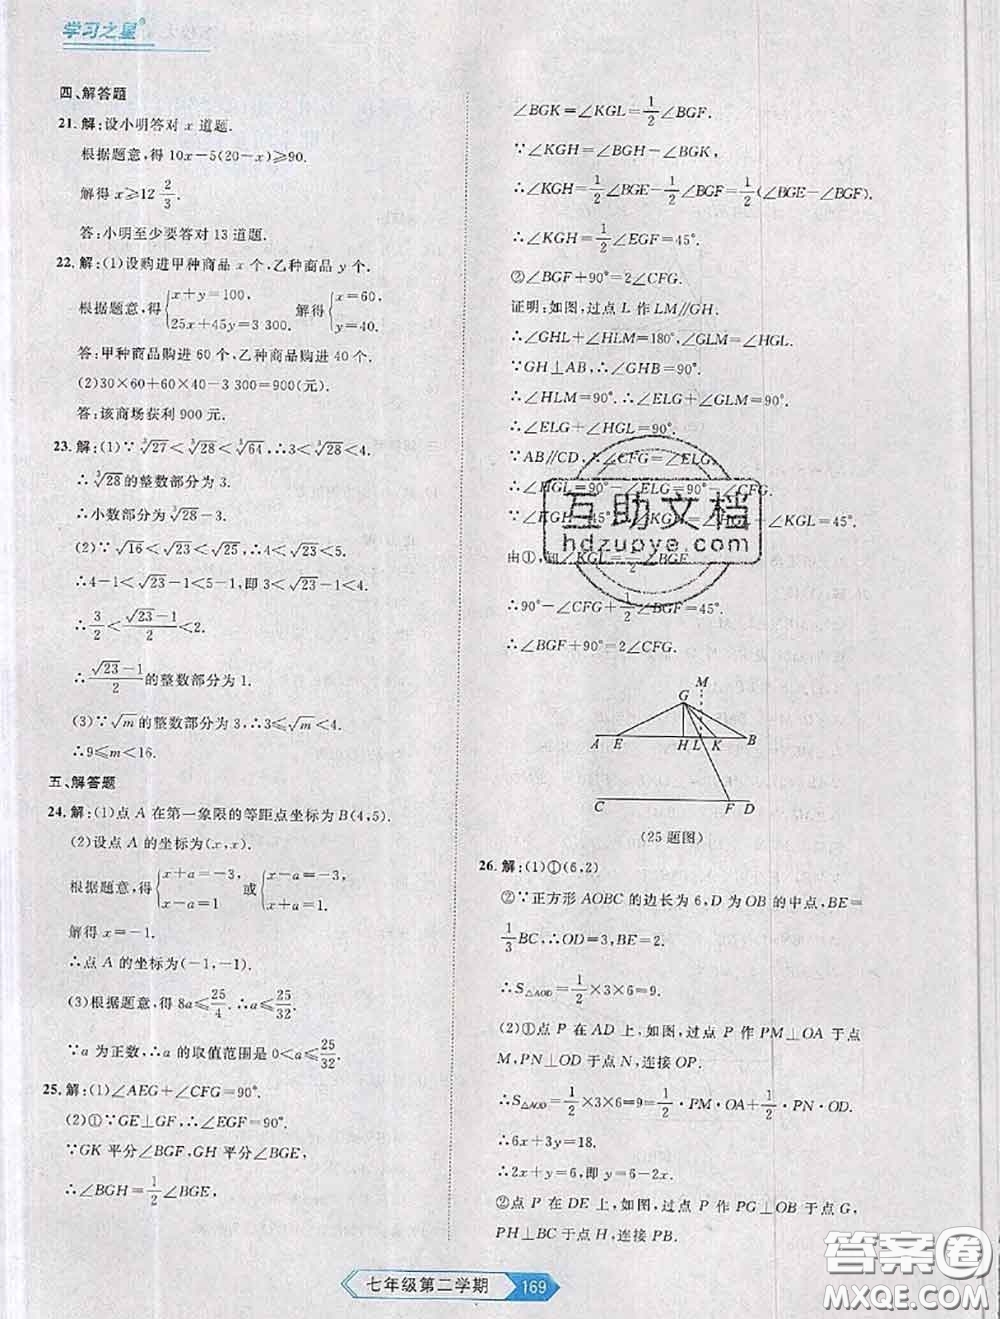 学习之星®
四、解答题
21.解:设小明答对 x 道题.
根据题意,得 10x-5(20-x)≥90.
解得 x≥12 2/3.
答:小明至少要答对 13 道题.
22.解:(1)设购进甲种商品 x 个,乙种商品 y 个.
根据题意,得{x+y=100, 25x+45y=3 300. 解得{x=60, y=40.
答:甲种商品购进 60 个,乙种商品购进 40 个.
(2)30×60+60×40-3 300=900(元).
答:该商场获利 900 元.
23.解:(1)∵∛27<∛28<∛64,∴3<∛28<4.
∴∛28的整数部分为 3.
∴小数部分为∛28-3.
(2)∵√16<√23<√25,∴4<√23<5.
∴4-1<√23-1<5-1,即 3<√23-1<4.
∴3/2<(√23-1)/2<2.
∴(√23-1)/2的整数部分为 1.
(3)∵√m的整数部分为 3,∴3≤√m<4.
∴9≤m<16.
五、解答题
24.解:(1)点 A 在第一象限的等距点坐标为 B(4,5).
(2)设点 A 的坐标为(x,x).
根据题意,得{x+a=-3, x-a=1 或{x-a=-3, x+a=1.
解得 x=-1.
∴点 A 的坐标为(-1,-1).
(3)根据题意,得 8a≤25/4.∴a≤25/32.
∵a 为正数,∴a 的取值范围是 0<a≤25/32.
25.解:(1)∠AEG+∠CFG=90°.
(2)①∵GE⊥GF,∴∠EGF=90°.
∵GK 平分∠BGF,GH 平分∠BGE,
∴∠BGH=1/2∠BGE,
∠BGK=∠KGL=1/2∠BGF.
∵∠KGH=∠BGH-∠BGK,
∴∠KGH=1/2∠BGE-1/2∠BGF=1/2(∠BGE-∠BGF).
∴∠KGH=1/2∠EGF=45°.
②∠BGF+90°=2∠CFG.
证明:如图,过点 L 作 LM∥GH.
∴∠GHL+∠HLM=180°,∠GLM=∠HGL.
∵GH⊥AB,∴∠GHB=90°.
∴∠HLM=90°.∴∠ELG+∠GLM=90°.
∴∠ELG+∠HGL=90°.
∵AB∥CD,∴∠CFG=∠ELG.
∴∠HGL=90°-∠ELG=90°-∠CFG.
∵∠KGH=45°,∴∠HGL+∠KGL=45°.
由①,知∠KGL=1/2∠BGF.
∴90°-∠CFG+1/2∠BGF=45°.
∴∠BGF+90°=2∠CFG.
M
G
A E H L K B
C F D
(25 题图)
26.解:(1)①(6,2)
②∵正方形 AOBC 的边长为 6,D 为 OB 的中点,BE=
1/3BC,∴OD=3,BE=2.
∴S△AOD=1/2×3×6=9.
(2)①点 P 在 AD 上,如图,过点 P 作 PM⊥OA 于点
M,PN⊥OD 于点 N,连接 OP.
∴S△AOD=1/2×3×6=9=1/2·PM·OA+1/2·PN·OD.
∴6x+3y=18.
∴2x+y=6,即 y=6-2x.
②点 P 在 DE 上,如图,过点 P 作 PG⊥OB 于点 G,
PH⊥BC 于点 H,连接 PB.
互助文档
hdzuoye.com
七年级第二学期 169
答案圈
MXQE.COM